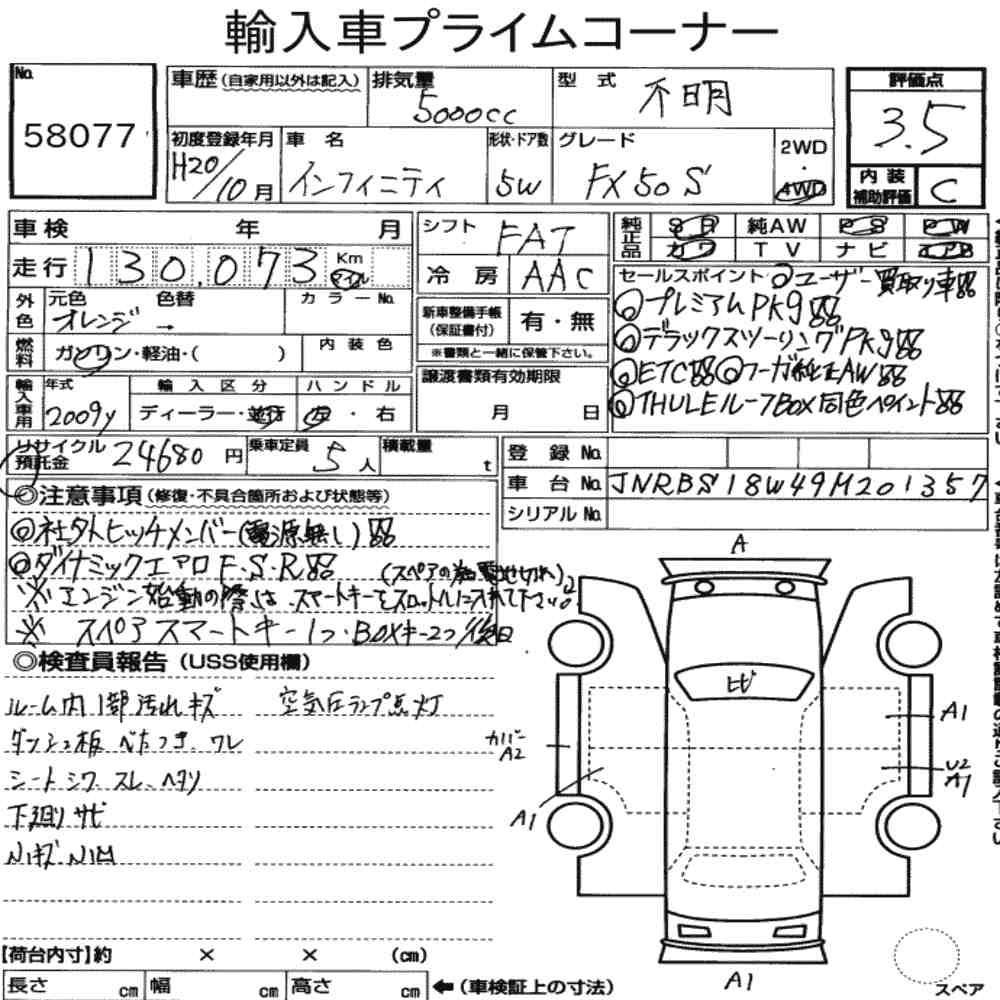 輸入車プライムコーナー
No.
58077
車歴(自家用以外は記入)
排気量
5000cc
型式
不明
初度登録年月
H20/10月
車名
インフィニティ
形状・ドア数
5W
グレード
FX50S
2WD
・
4WD
評価点
3.5
内装
補助評価
C
車検 年 月
走行 130,073 Km
マイル
外色
元色 色替
オレンジ →
カラーNo.
燃料
ガソリン・軽油・( )
内装色
輸入車用
年式
2009y
輸入区分
ディーラー・並行
ハンドル
左・右
リサイクル
預託金
24680円
乗車定員
5人
積載量
t
シフト
FAT
冷房
AAC
新車整備手帳
(保証書付)
有・無
※書類と一緒に保管下さい。
譲渡書類有効期限
月 日
純正品
SR 純AW PS PW
カワ TV ナビ エアB
セールスポイント ◎ユーザー買取り車
◎プレミアムPKg
◎デラックスツーリングPKg
◎ETC ◎フーガ純正AW
◎THULEルーフBOX同色ペイント
登録No.
車台No. JNRBS18W49M201357
シリアルNo.
◎注意事項(修復・不具合箇所および状態等)
◎社外ヒッチメンバー(電源無し)
◎ダイナミックエアロF・S・R
(スペアの為電池切れ)
※エンジン始動の際は、スマートキーをスロットルに入れて下さい。
※ スペアスマートキー1つ・BOXキー2つ後日
◎検査員報告(USS使用欄)
ルーム内1部汚れキズ
空気圧ランプ点灯
ダッシュ板 べたつき、ワレ
シートシワ スレ、ヘタリ
下廻りサビ
N1キズ N1凹
A
ヒビ
A1
カバー
A2
U2
A1
A1
A1
スペア
【荷台内寸】約 × × (cm)
長さ cm 幅 cm 高さ cm
←(車検証上の寸法)